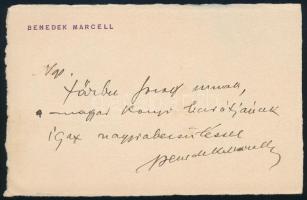 BENEDEK MARCELL
József urnak,
a magyar könyv barátjának
igaz nagyrabecsüléssel
Benedek Marcell